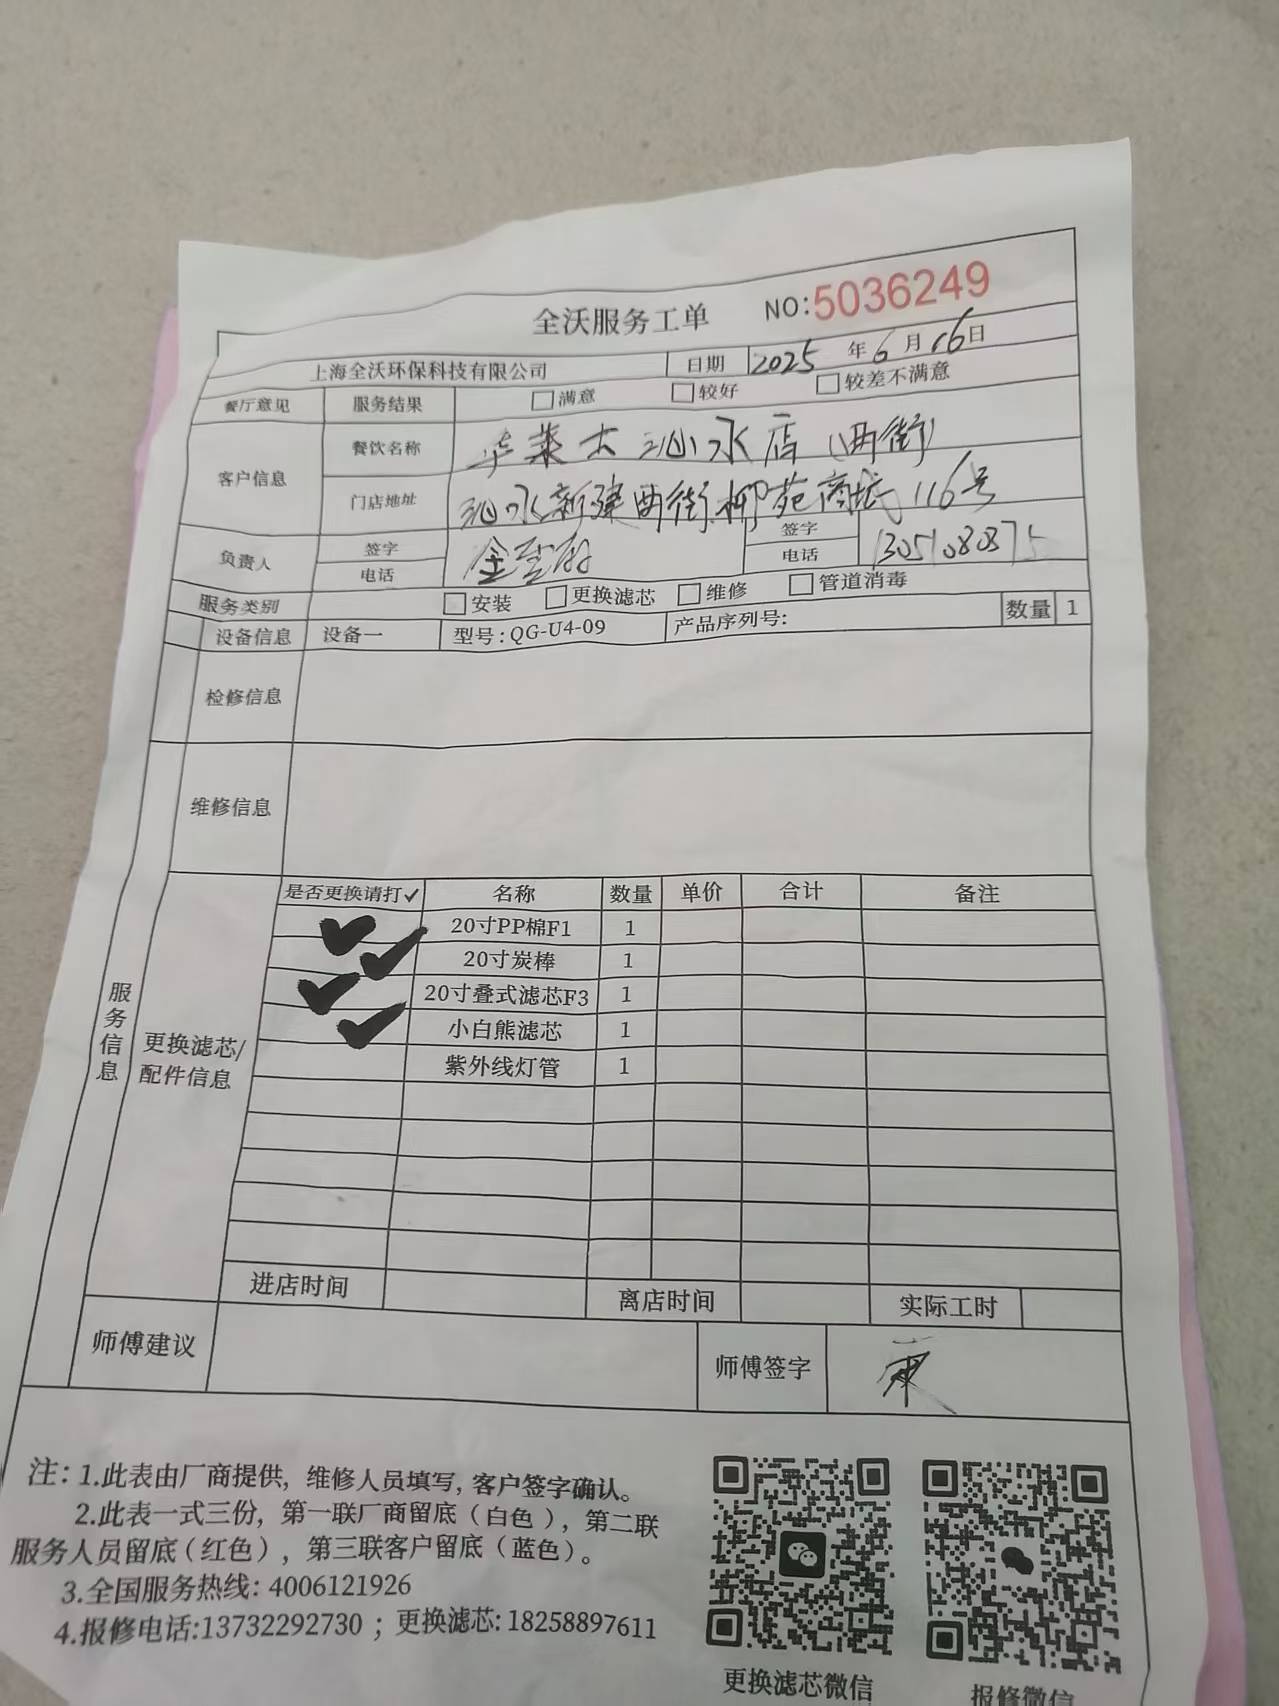 全沃服务工单 NO:5036249
上海全沃环保科技有限公司 日期 2025 年 6 月 16 日
餐厅意见 服务结果 满意 较好 较差不满意
客户信息 餐饮名称 华莱士沁水店(西街)
门店地址 沁水新建西街柳苑商城116号
负责人 签字 签字
电话 金 电话 13051080375
服务类别 安装 更换滤芯 维修 管道消毒
设备信息 设备一 型号:QG-U4-09 产品序列号: 数量 1
检修信息
维修信息
服务信息
更换滤芯/配件信息
是否更换请打✓ 名称 数量 单价 合计 备注
✓ 20寸PP棉F1 1
✓ 20寸炭棒 1
✓ 20寸叠式滤芯F3 1
✓ 小白熊滤芯 1
紫外线灯管 1
进店时间 离店时间 实际工时
师傅建议 师傅签字
注:1.此表由厂商提供,维修人员填写,客户签字确认。
2.此表一式三份,第一联厂商留底(白色),第二联
服务人员留底(红色),第三联客户留底(蓝色)。
3.全国服务热线:4006121926
4.报修电话:13732292730;更换滤芯:18258897611
更换滤芯微信 报修微信